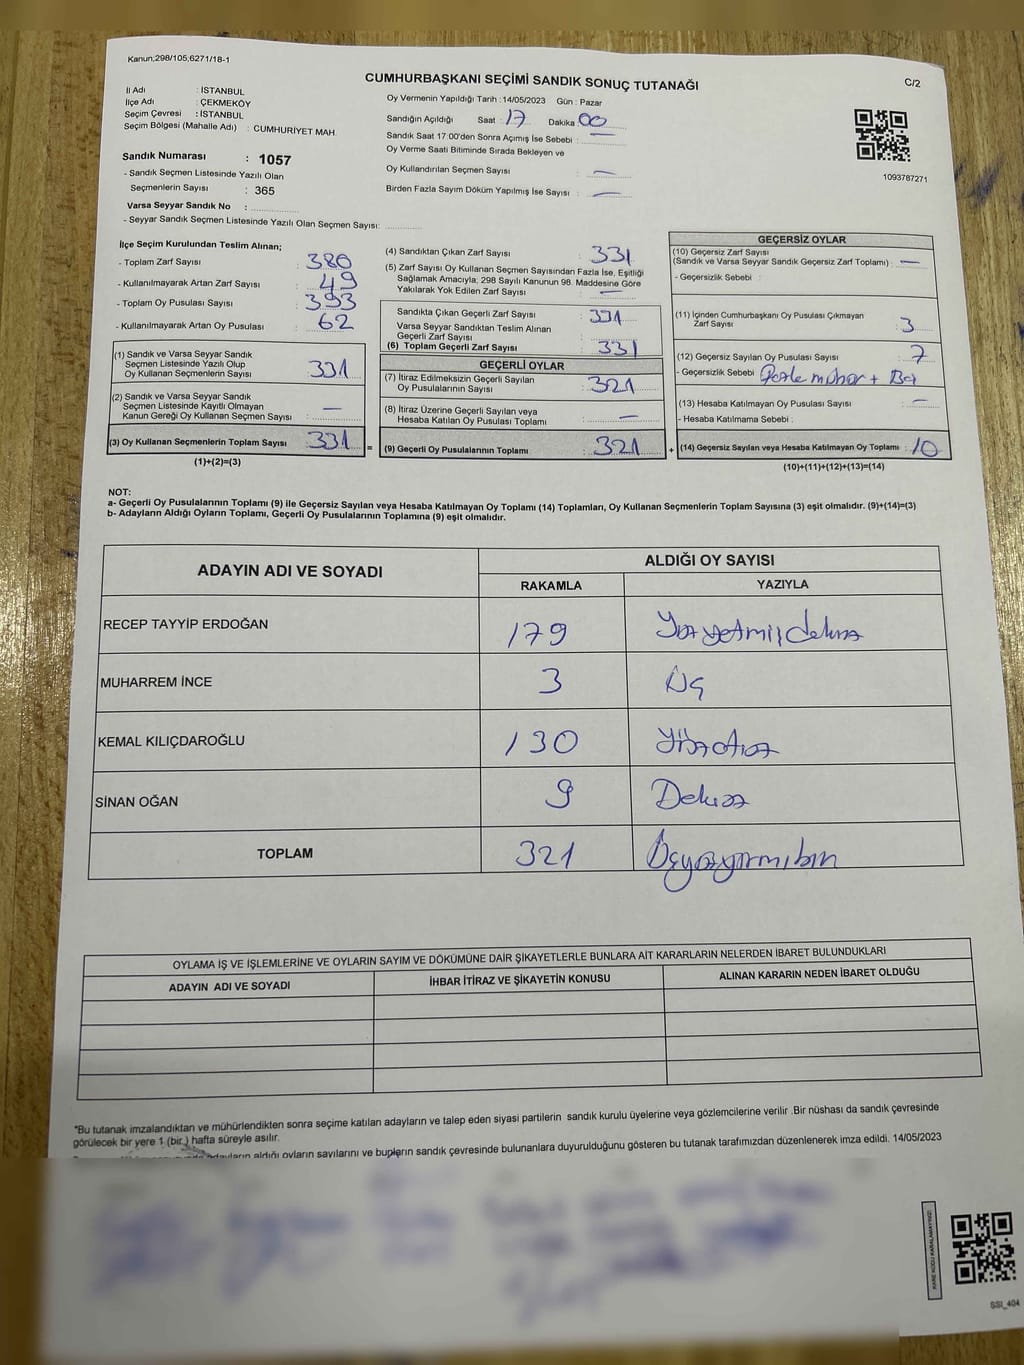 Kanun;298/105;6271/18-1
CUMHURBAŞKANI SEÇİMİ SANDIK SONUÇ TUTANAĞI
C/2
İl Adı : İSTANBUL
İlçe Adı : ÇEKMEKÖY
Seçim Çevresi : İSTANBUL
Seçim Bölgesi (Mahalle Adı) : CUMHURİYET MAH.
Sandık Numarası : 1057
- Sandık Seçmen Listesinde Yazılı Olan
Seçmenlerin Sayısı : 365
Varsa Seyyar Sandık No :
- Seyyar Sandık Seçmen Listesinde Yazılı Olan Seçmen Sayısı:
Oy Vermenin Yapıldığı Tarih : 14/05/2023 Gün : Pazar
Sandığın Açıldığı Saat : 17 Dakika 00
Sandık Saat 17:00'den Sonra Açımış İse Sebebi : —
Oy Verme Saati Bitiminde Sırada Bekleyen ve
Oy Kullandırılan Seçmen Sayısı : —
Birden Fazla Sayım Döküm Yapılmış İse Sayısı : —
1093787271
İlçe Seçim Kurulundan Teslim Alınan;
- Toplam Zarf Sayısı : 380
- Kullanılmayarak Artan Zarf Sayısı : 49
- Toplam Oy Pusulası Sayısı : 393
- Kullanılmayarak Artan Oy Pusulası : 62
(1) Sandık ve Varsa Seyyar Sandık
Seçmen Listesinde Yazılı Olup
Oy Kullanan Seçmenlerin Sayısı : 331
(2) Sandık ve Varsa Seyyar Sandık
Seçmen Listesinde Kayıtlı Olmayan
Kanun Gereği Oy Kullanan Seçmen Sayısı : —
(3) Oy Kullanan Seçmenlerin Toplam Sayısı : 331 =
(1)+(2)=(3)
(4) Sandıktan Çıkan Zarf Sayısı : 331
(5) Zarf Sayısı Oy Kullanan Seçmen Sayısından Fazla İse, Eşitliği
Sağlamak Amacıyla, 298 Sayılı Kanunun 98. Maddesine Göre
Yakılarak Yok Edilen Zarf Sayısı : —
Sandıkta Çıkan Geçerli Zarf Sayısı : 331
Varsa Seyyar Sandıktan Teslim Alınan
Geçerli Zarf Sayısı :
(6) Toplam Geçerli Zarf Sayısı : 331
GEÇERLİ OYLAR
(7) İtiraz Edilmeksizin Geçerli Sayılan
Oy Pusulalarının Sayısı : 321
(8) İtiraz Üzerine Geçerli Sayılan veya
Hesaba Katılan Oy Pusulası Toplamı : —
(9) Geçerli Oy Pusulalarının Toplamı : 321 +
GEÇERSİZ OYLAR
(10) Geçersiz Zarf Sayısı
(Sandık ve Varsa Seyyar Sandık Geçersiz Zarf Toplamı) : —
- Geçersizlik Sebebi :
(11) İçinden Cumhurbaşkanı Oy Pusulası Çıkmayan
Zarf Sayısı : 3
(12) Geçersiz Sayılan Oy Pusulası Sayısı : 7
- Geçersizlik Sebebi :
(13) Hesaba Katılmayan Oy Pusulası Sayısı : —
- Hesaba Katılmama Sebebi :
(14) Geçersiz Sayılan veya Hesaba Katılmayan Oy Toplamı : 10
(10)+(11)+(12)+(13)=(14)
NOT:
a- Geçerli Oy Pusulalarının Toplamı (9) ile Geçersiz Sayılan veya Hesaba Katılmayan Oy Toplamı (14) Toplamları, Oy Kullanan Seçmenlerin Toplam Sayısına (3) eşit olmalıdır. (9)+(14)=(3)
b- Adayların Aldığı Oyların Toplamı, Geçerli Oy Pusulalarının Toplamına (9) eşit olmalıdır.
ADAYIN ADI VE SOYADI
ALDIĞI OY SAYISI
RAKAMLA YAZIYLA
RECEP TAYYİP ERDOĞAN 179
MUHARREM İNCE 3 Üç
KEMAL KILIÇDAROĞLU 130 Yüzotuz
SİNAN OĞAN 9 Dokuz
TOPLAM 321 Üçyüzyirmibir
OYLAMA İŞ VE İŞLEMLERİNE VE OYLARIN SAYIM VE DÖKÜMÜNE DAİR ŞİKAYETLERLE BUNLARA AİT KARARLARIN NELERDEN İBARET BULUNDUKLARI
ADAYIN ADI VE SOYADI
İHBAR İTİRAZ VE ŞİKAYETİN KONUSU
ALINAN KARARIN NEDEN İBARET OLDUĞU
*Bu tutanak imzalandıktan ve mühürlendikten sonra seçime katılan adayların ve talep eden siyasi partilerin sandık kurulu üyelerine veya gözlemcilerine verilir .Bir nüshası da sandık çevresinde
görülecek bir yere 1 (bir ) hafta süreyle asılır.
adayların aldığı oyların sayılarını ve bunların sandık çevresinde bulunanlara duyurulduğunu gösteren bu tutanak tarafımızdan düzenlenerek imza edildi. 14/05/2023
KARE KODU KARALAMAYINIZ!
SSI_404